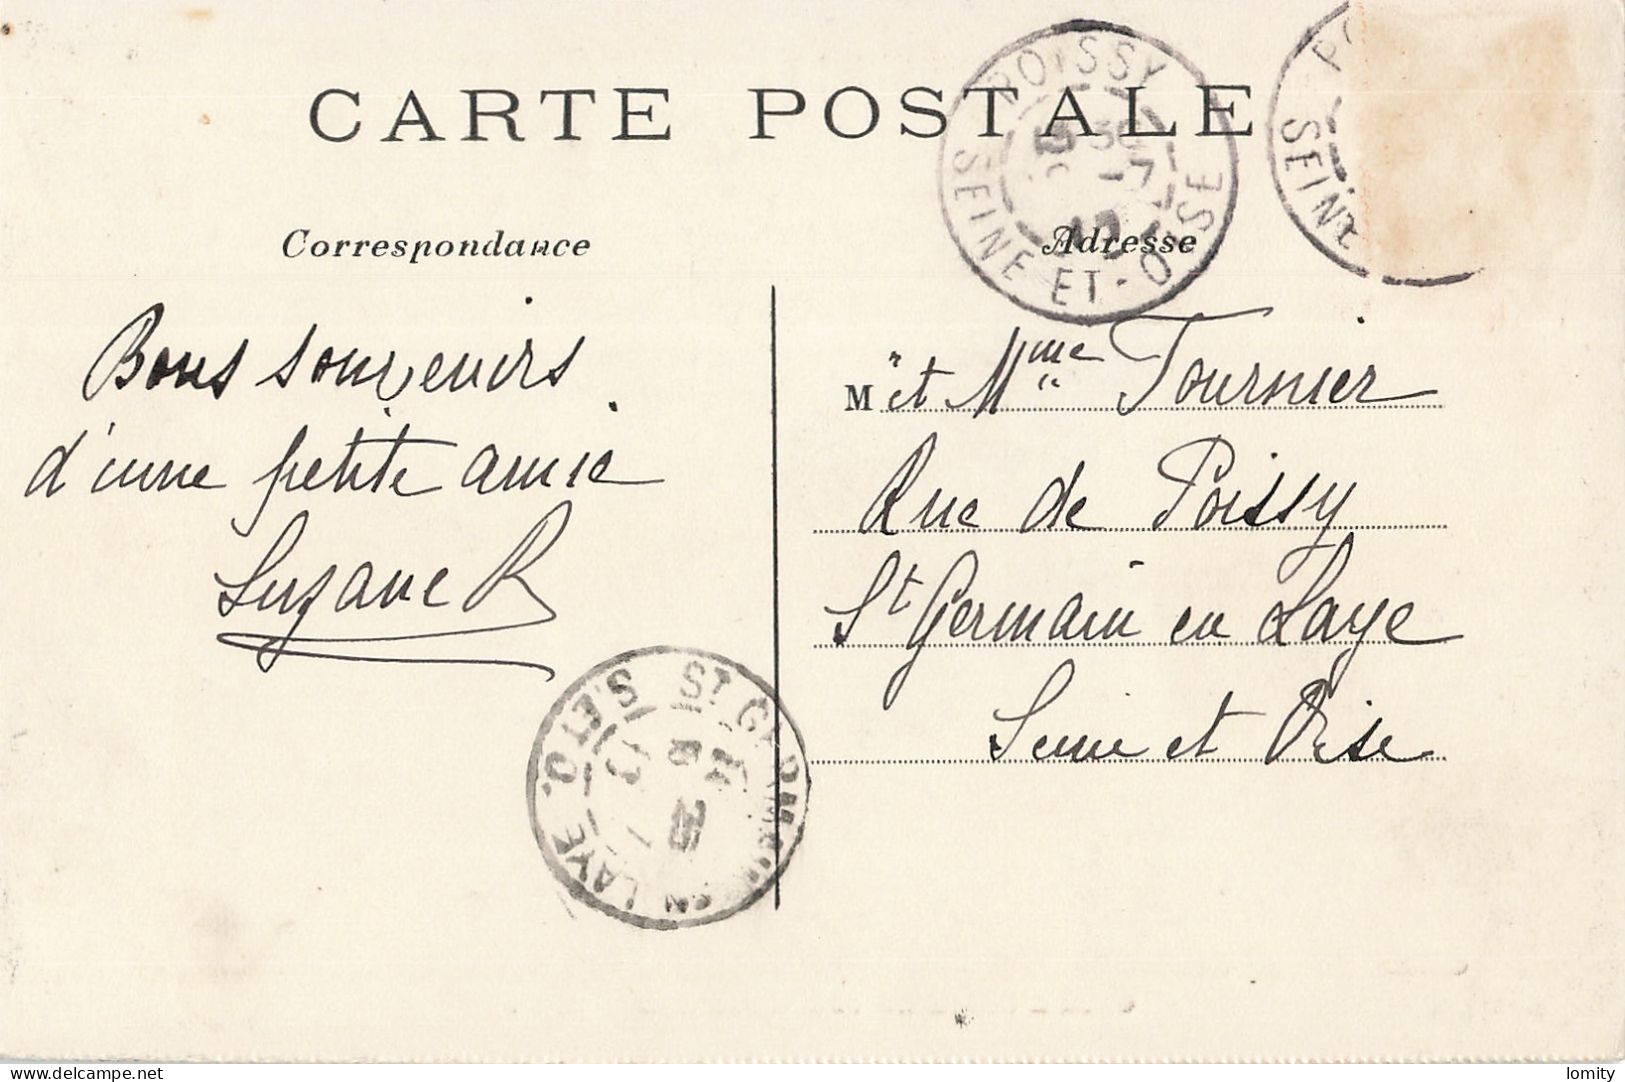 CARTE POSTALE
POISSY
SEINE-ET-OISE
SEINE
Correspondance
Adresse
Bons souvenirs
d'une petite amie
Suzane R
M et Mme Tournier
Rue de Poissy
St Germain en Laye
Seine et Oise
ST GERMAIN EN LAYE
S.ET O.
delcampe.net
lomity